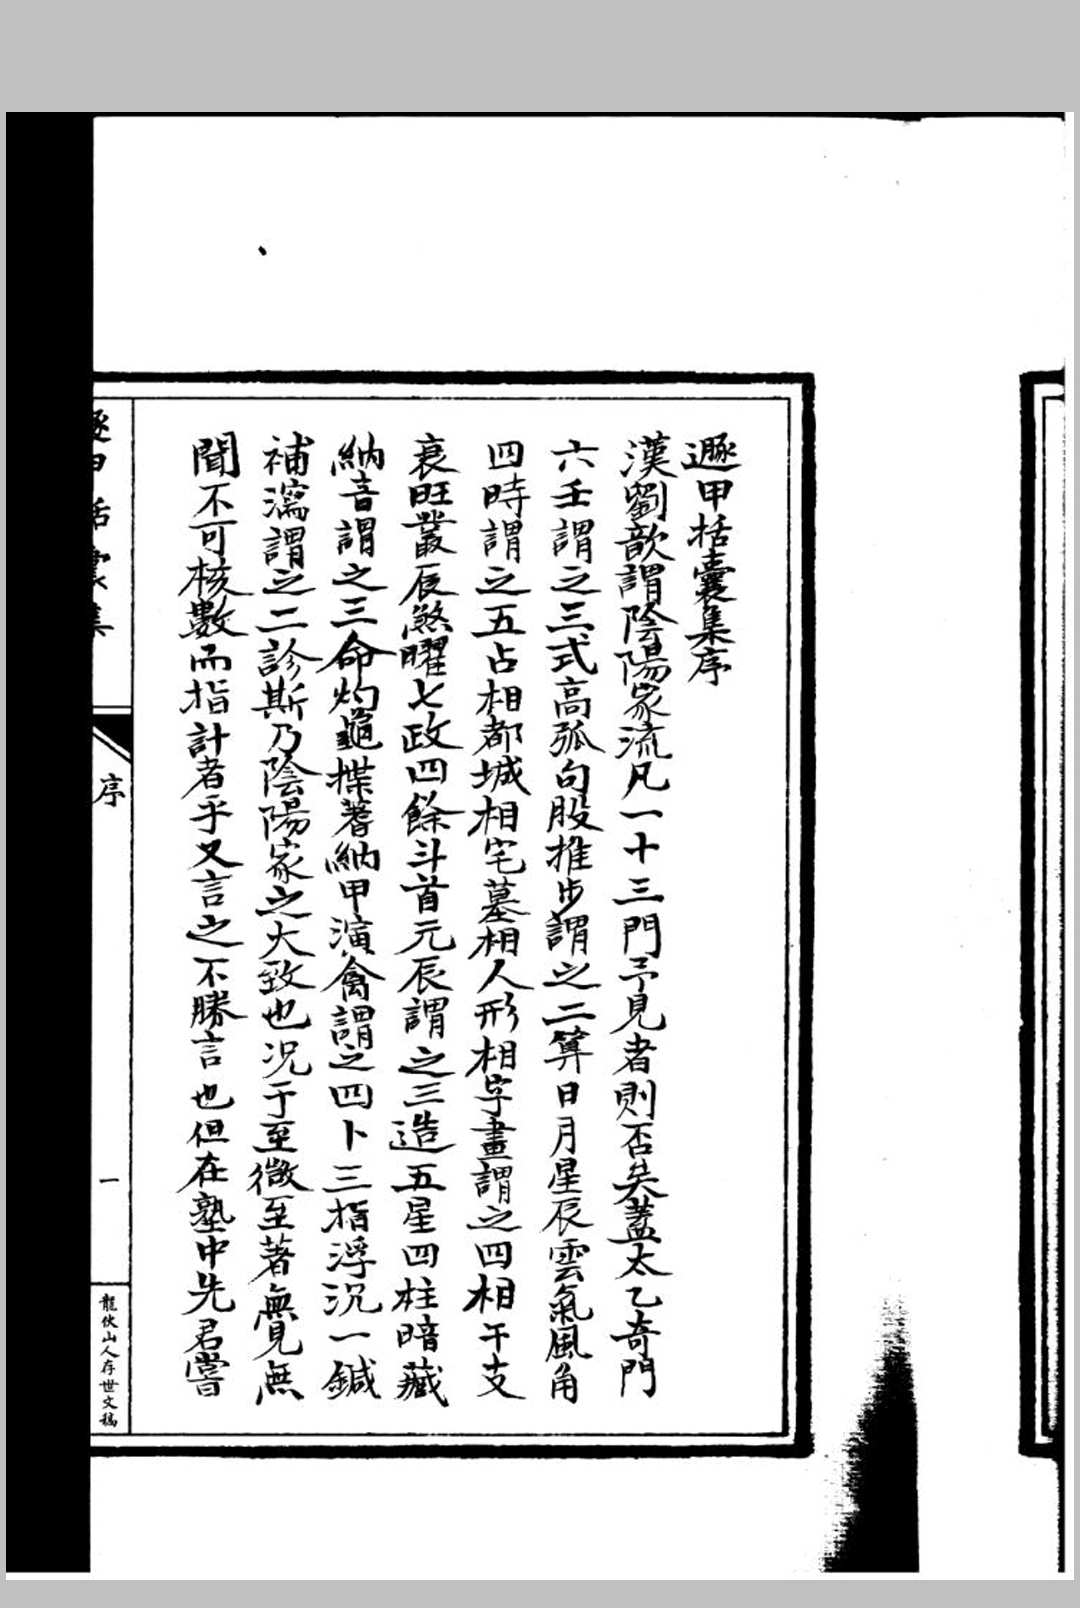 遯甲括囊集序
漢劉歆謂陰陽家流凡一十三門予見者則否矣蓋太乙奇門
六壬謂之三式高弧句股推步謂之二算日月星辰雲氣風角
四時謂之五占相都城相宅墓相人形相字畫謂之四相干支
衰旺叢辰煞曜七政四餘斗首元辰謂之三造五星四柱暗藏
納音謂之三命灼龜揲蓍納甲演禽謂之四卜三指浮沉一鍼
補瀉謂之二診斯乃陰陽家之大致也况于至微至著無見無
聞不可核數而指計者乎又言之不勝言也但在塾中先君嘗
遯甲括囊集
序
一
龍伏山人存世文稿